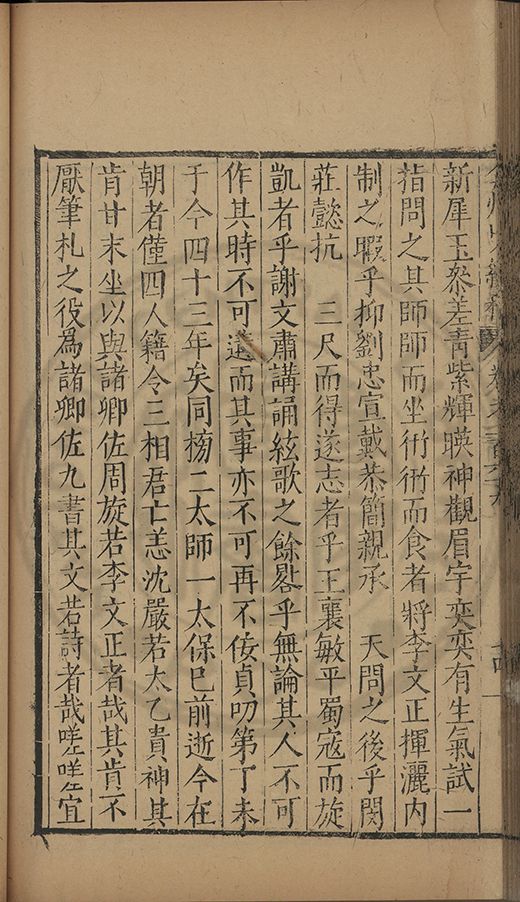 新犀玉參差青紫輝暎神觀眉宇奕奕有生氣試一
指問之其師師而坐衎衎而食者將李文正揮灑内
制之暇乎抑劉忠宣戴恭簡親承　天問之後乎閔
莊懿抗　三尺而得遂志者乎王襄敏平蜀寇而旋
凱者乎謝文肅講誦絃歌之餘畧乎無論其人不可
作其時不可還而其事亦不可再不佞貞叨第丁未
于今四十三年矣同榜二太師一太保已前逝今在
朝者僅四人籍令三相君亡恙沈嚴若太乙貴神其
肯甘末坐以與諸卿佐周旋若李文正者哉其肯不
厭筆札之役爲諸卿佐九書其文若詩者哉嗟咩宜